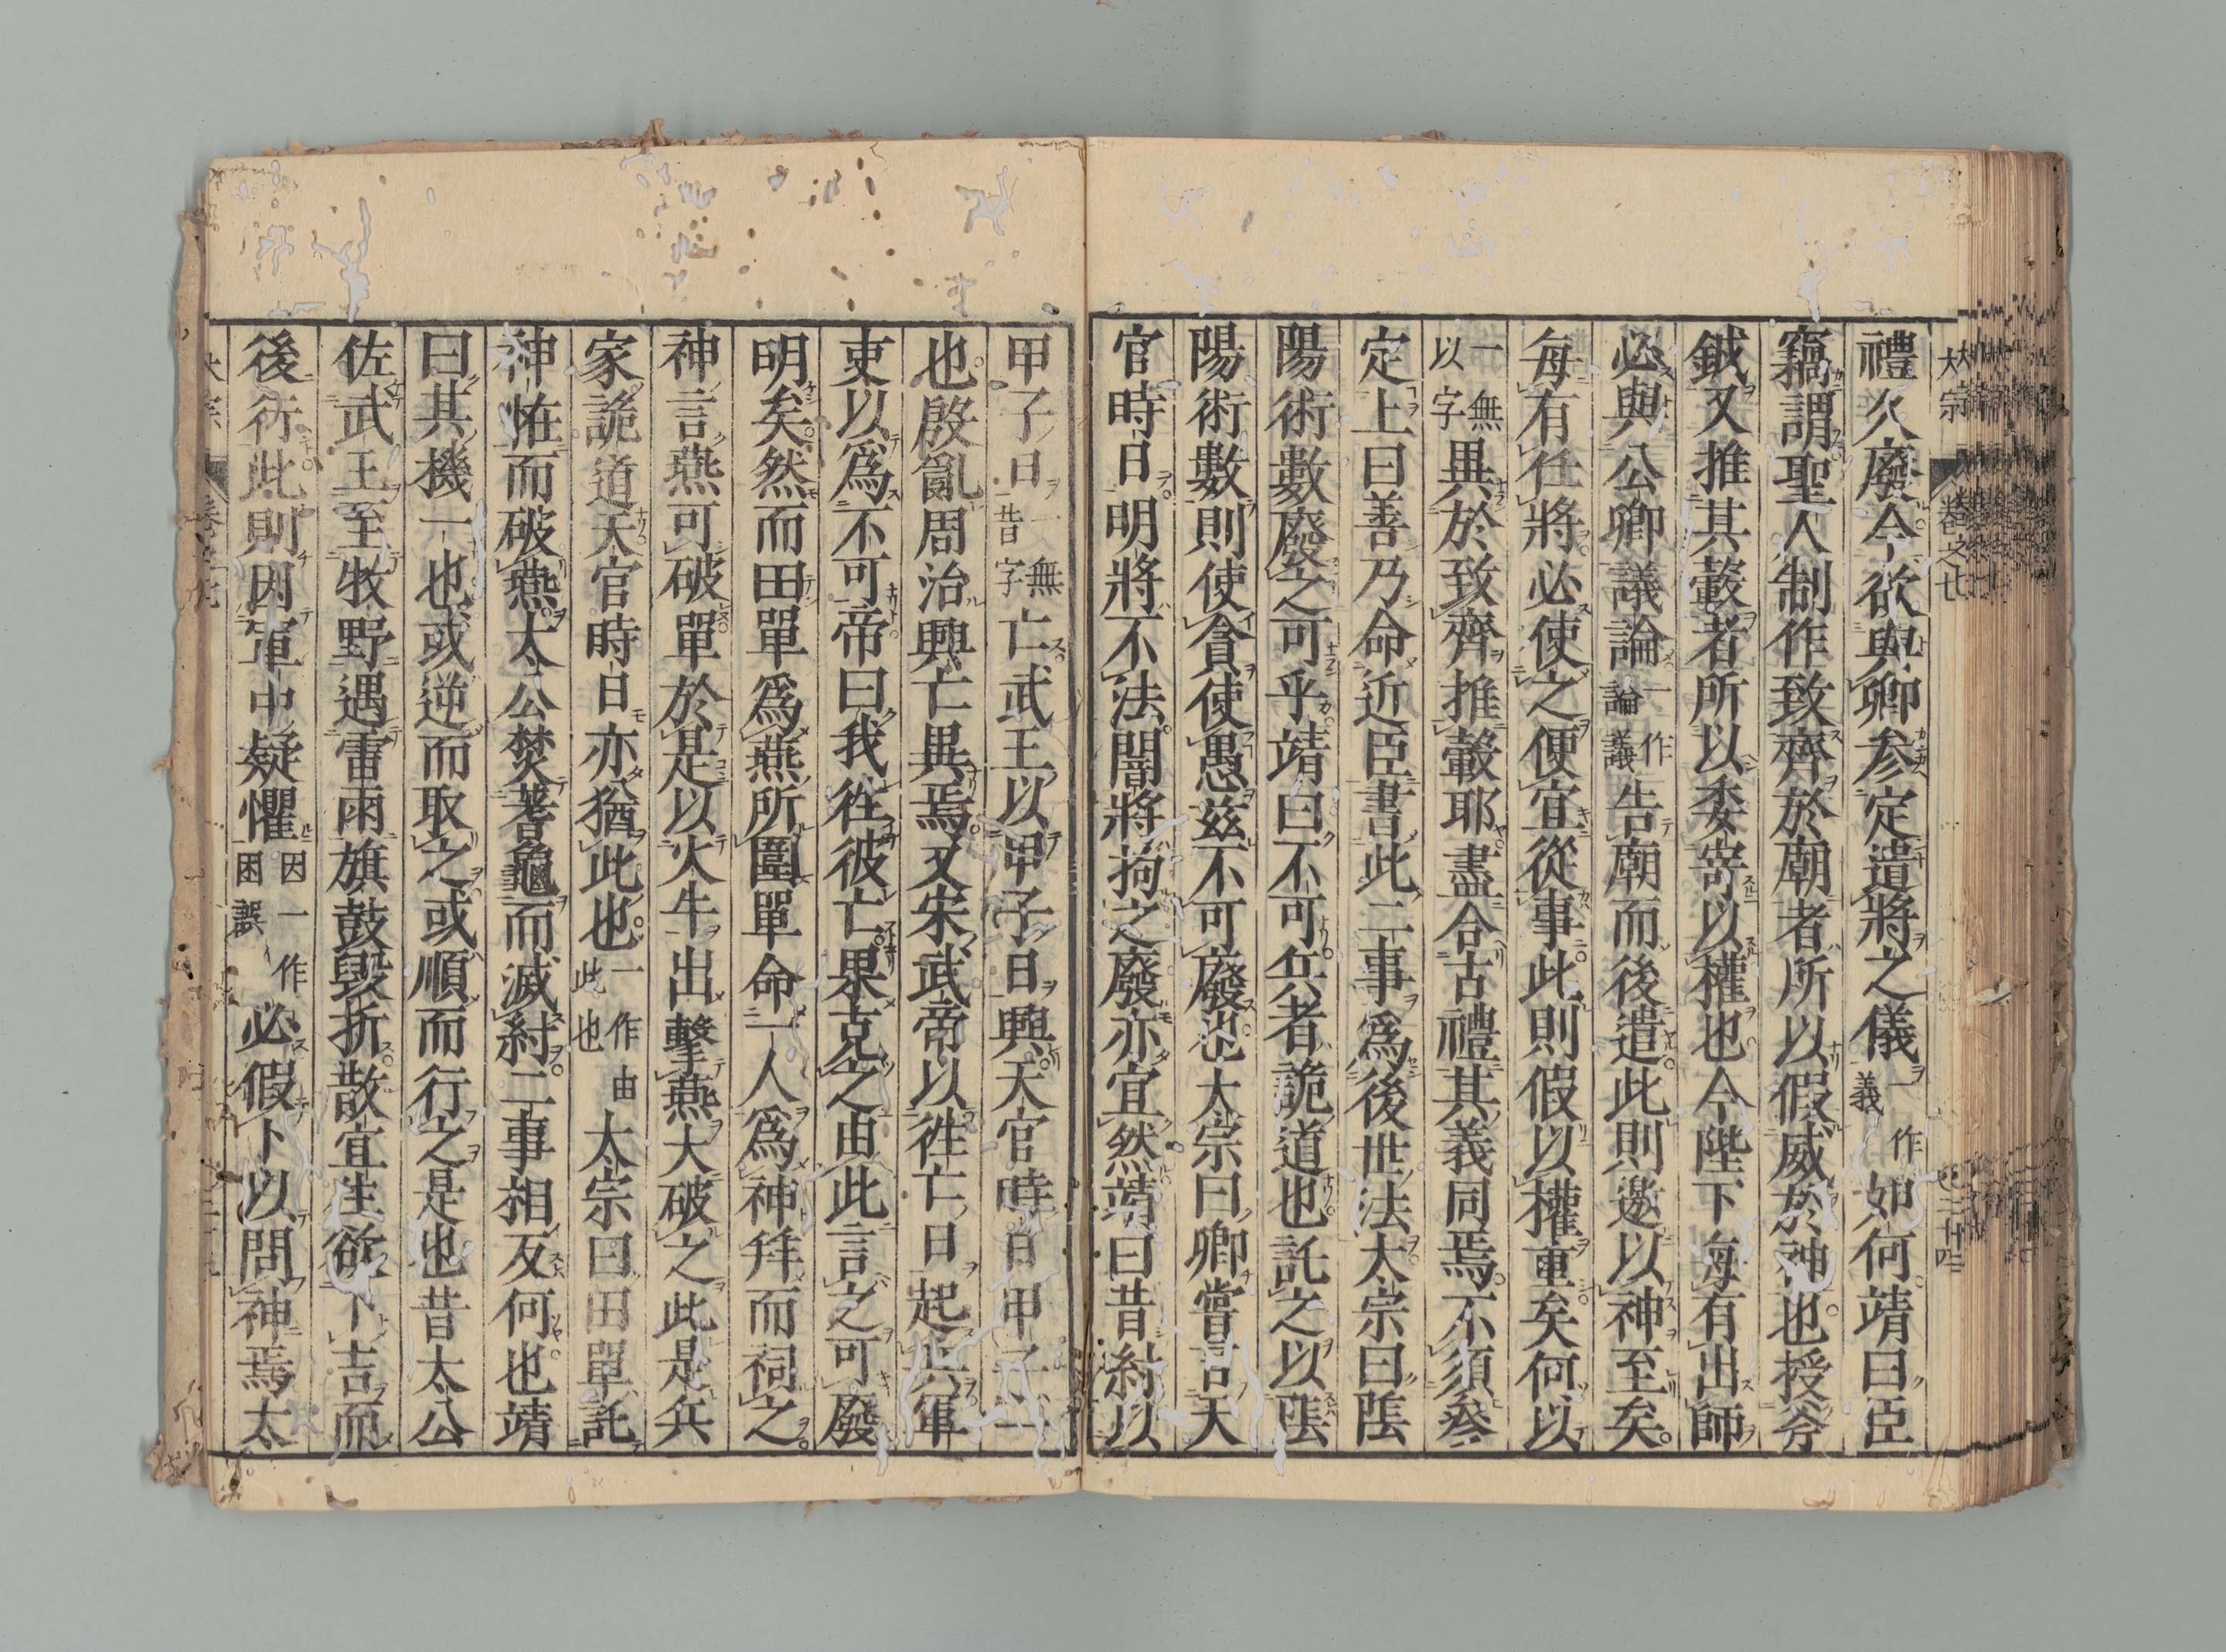 禮久廢今欲與卿参定遣將之儀一作義如何靖曰臣
竊謂聖人制作致齊於廟者所以假威於神也授斧
鉞又推其轂者所以委寄以權也今陛下每有出師
必與公卿議論一作論議告廟而後遣此則邀以神至矣
每有任將必使之便宜從事此則假以權重矣何以
一無以字異於致齊推轂耶盡合古禮其義同焉不須參
定上曰善乃命近臣書此二事爲後世法太宗曰陰
陽術數廢之可乎靖曰不可兵者詭道也託之以陰
陽術數則使貪使愚兹不可廢也太宗曰卿嘗言天
官時日明將不法闇將拘之廢亦宜然靖曰昔紂以
甲子日一無昔字亡武王以甲子日興天官時日甲子一
也殷亂周治興亡異焉又宋武帝以徃亡日起兵軍
吏以爲不可帝曰我徃彼亡果克之由此言之可廢
明矣然而田單爲燕所圍單命一人爲神拜而祠之
神言燕可破單於是以火牛出擊燕大破之此是兵
家詭道天官時日亦猶此也一作由此也太宗曰田單託
神恠而破燕太公焚蓍龜而滅紂二事相反何也靖
曰其機一也或逆而取之或順而行之是也昔太公
佐武王至牧野遇雷雨旗鼓毀折散宜生欲卜吉而
後行此則因軍中疑懼因一作困誤必假卜以問神焉太
太宗 卷之七